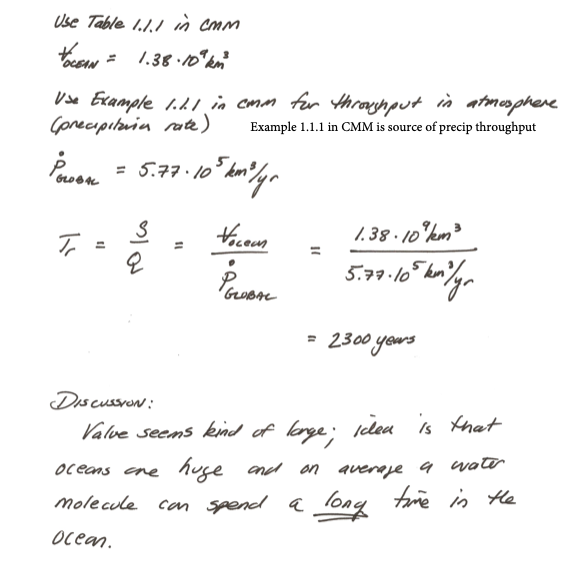 Use Table 1.1.1 in CMM
V̶ocean = 1.38 · 10⁹ km³
Use Example 1.1.1 in cmm for throughput in atmosphere
(precipitation rate) Example 1.1.1 in CMM is source of precip throughput
Ṗglobal = 5.77 · 10⁵ km³/yr
Tr = S/Q = V̶ocean/Ṗglobal = 1.38 · 10⁹ km³/5.77 · 10⁵ km³/yr
= 2300 years
Discussion:
Value seems kind of large; idea is that
oceans are huge and on average a water
molecule can spend a long time in the
ocean.